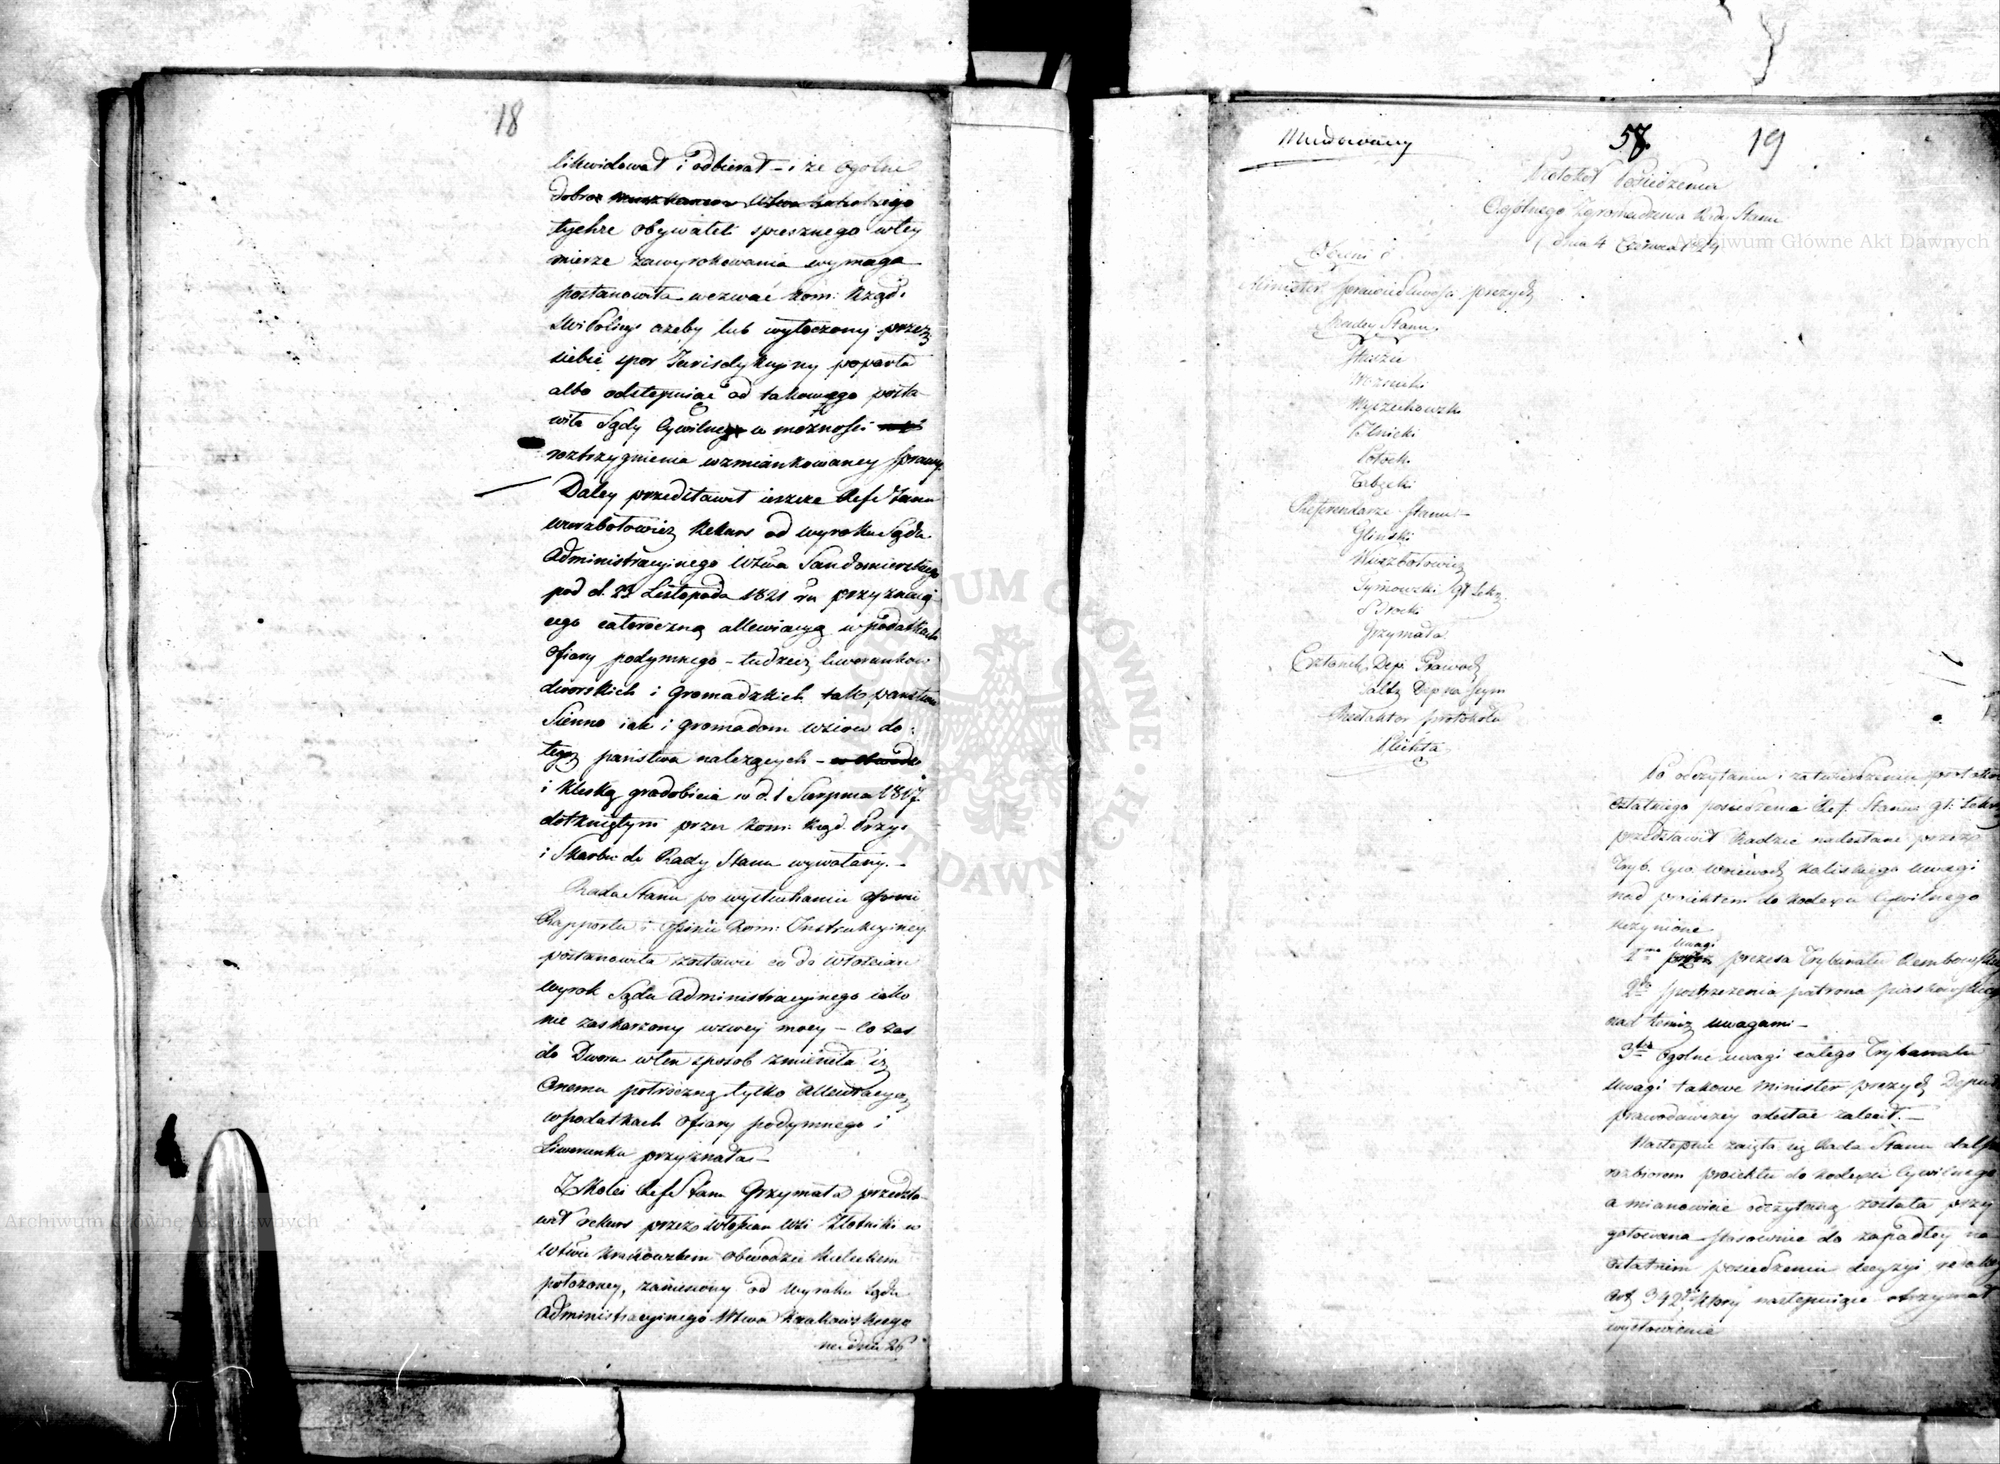 18
likwidował i odbierał – i że ogólne
dobro mieszkańców Wdzwa Lubelskiego
tychże obywateli spiesznego w tey
mierze zawyrokowania wymaga
postanowiła wezwać Kom: Rząd:
ażeby lub wytoczony przez
siebie spor Jurisdykcyiny poparła
albo odstępuiąc od takowego posta
wiła Sądy Cywilne w możności
rozstrzygnienia wzmiankowaney sprawy.
Daley przedstawił ieszcze Refe Stanu
Wierzbołowicz Rekurs od wyroku Sądu
Administracyinego Wdzwa Sandomierskiego
pod d. 23 Listopada 1821 ru przyznaią
cego całoroczną allewiacyą w podatkach
ofiary podymnego – tudzież liwerunków
dworskich i gromadzkich tak państwu
Sienno iak i gromadom wsiow do
tegoż państwa należących – w obwodzie
i klęską gradobicia w d. 1 Sierpnia 1817
dotkniętym przez Kom: Rząd. Przy:
i Skarbu do Rady Stanu wywołany. –
Rada Stanu po wysłuchaniu
Rapportu i Opinii Kom: Instrukcyiney
postanowiła zostawić co do włościan
wyrok Sądu Administracyinego iako
nie zaskarżony w swey mocy – co zaś
do Dworu w ten sposob zmieniła iż
onemu potroczną tylko allewiacyą
w podatkach ofiary podymnego i
Liwerunku przyznała –
Z kolei Refe Stanu Grzymała przedsta
wił rekurs przez włościan wsi Złotniki w
Wdztwie Krakowskiem Obwodzie Kieleckiem
położoney, zaniesiony od wyroku Sądu
Administracyinego Wdzwa Krakowskiego
na dniu 26
Mundowany
57.
19
Protokoł Posiedzenia
Ogólnego Zgromadzenia Rdy Stanu
dnia 4 Czerwca 1824
Obecni
Minister Sprawiedliwości prezyd
Radcy Stanu
Staszic
Woznicki
Wyszechowski
Potock.
Referendarze Stanu –
Gliński
Wierzbołowicz
Tymowski Gł Sekr
Grzymała
Członek Dep. Prawod
Redaktor protokołu
Po odczytaniu i zatwierdzeniu protoko
ostatniego posiedzenia Ref. Stanu Gł: Sekr
przedstawił Radzie nadesłane przez
Tryb. Cyw. Wojewodz Kaliskiego uwagi
nad proiektem do kodexu Cywilnego
uczynione
1mo uwagi prezesa Trybunału Rembowski
2do spostrzeżenia patrona Piaskowskieg
nad temiż uwagami –
3tio Ogolne uwagi całego Trybunału
Uwagi takowe Minister prezyd Deput
prawodawczey odesłać zalecił. –
Następnie zaięła się Rada Stanu dalszym
rozbiorem proiektu do kodexu Cywilnego
a mianowicie odczytaną została przy
gotowana stosownie do zapadłey na
ostatniem posiedzeniu decyzyi redakcy
art 342 ktory następuiące otrzymał
wysłowienie
Archiwum Główne Akt Dawnych
Archiwum Główne Akt Dawnych